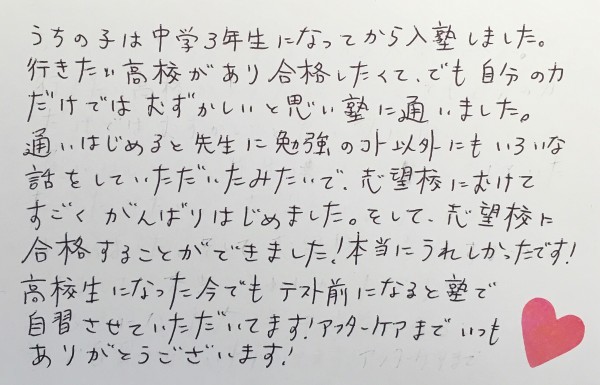 うちの子は中学3年生になってから入塾しました。
行きたい高校があり合格したくて、でも自分の力
だけではむずかしいと思い塾に通いました。
通いはじめると先生に勉強のコト以外にもいろいな
話をしていただいたみたいで、志望校にむけて
すごくがんばりはじめました。そして、志望校に
合格することができました！本当にうれしかったです！
高校生になった今でもテスト前になると塾で
自習させていただいてます！アフターケアまでいつも
ありがとうございます！